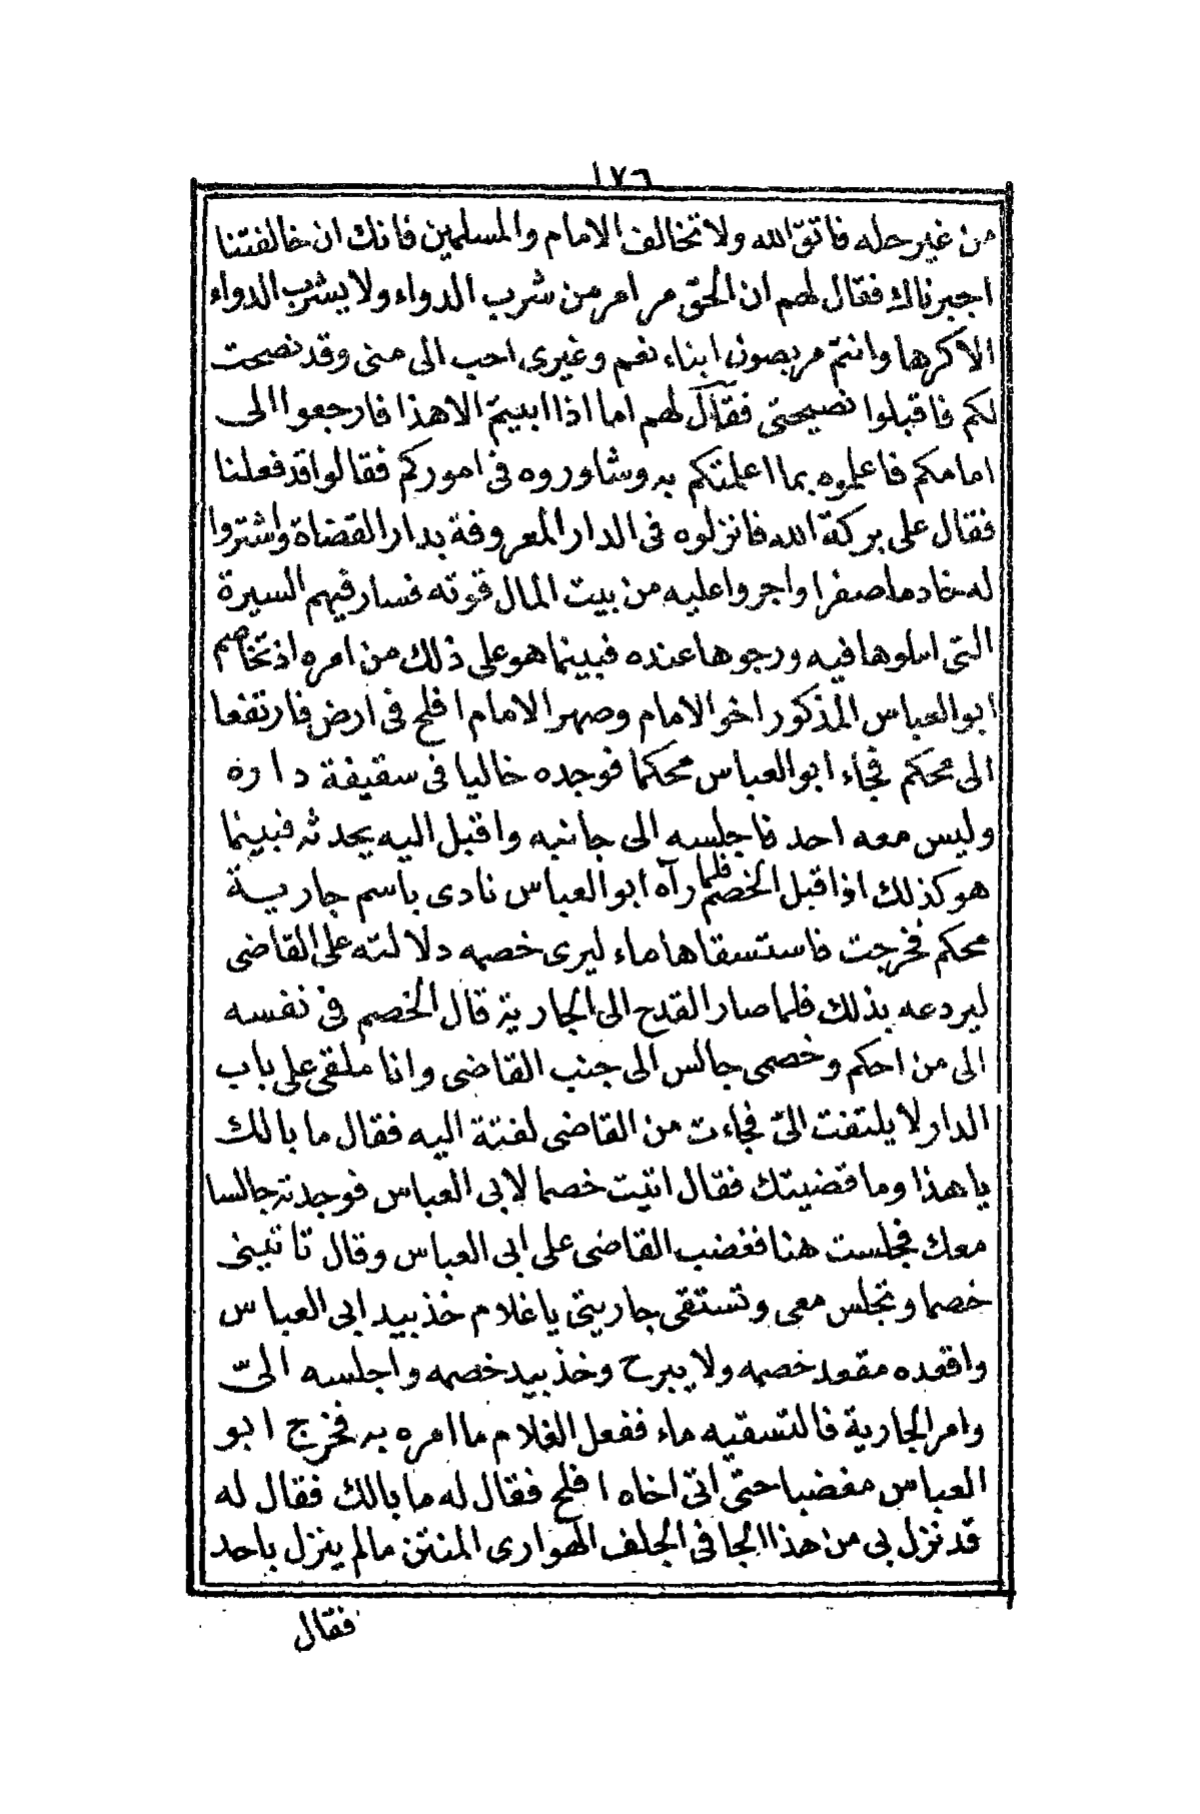 ١٧٦
من غير حله فاتق الله ولا تخالف الامام والمسلمين فانك ان خالفتنا
اجبرناك فقال لهم ان الحق مر امر من شرب الدواء ولا يشرب الدواء
الا كرها وانتم مربصون ابناء نعم وغيرى احب الى منى وقد نصحت
لكم فاقبلوا نصيحتى فقال لهم اما اذا ابيتم الا هذا فارجعوا الى
امامكم فاعلموه بما اعلمتكم به وشاوروه فى اموركم فقالوا قد فعلنا
فقال على بركة الله فانزلوه فى الدار المعروفة بدار القضاة واشتروا
له خادما صفرا واجروا عليه من بيت المال قوته فسار فيهم السيرة
التى املوها فيه ورجوها عنده فبينما هو على ذلك من امره اذ تخاصم
ابو العباس المذكور اخو الامام وصهر الامام افلح فى ارض فارتفعا
الى محكم فجاء ابو العباس محكما فوجده خاليا فى سقيفة داره
وليس معه احد فاجلسه الى جانبه واقبل اليه يحدثه فبينما
هو كذلك اذ اقبل الخصم فلما رآه ابو العباس نادى باسم جارية
محكم فخرجت فاستسقاها ماء ليرى خصمه دلالته على القاضى
ليردعه بذلك فلما صار القدح الى الجارية قال الخصم فى نفسه
الى من احكم وخصمى جالس الى جنب القاضى وانا ملقى على باب
الدار لا يلتفت الىّ فجاءت من القاضى لفتة اليه فقال ما بالك
يا هذا وما قضيتك فقال اتيت خصما لابى العباس فوجدته جالسا
معك فجلست هنا فغضب القاضى على ابى العباس وقال تاتينى
خصما وتجلس معى وتستقى جاريتى يا غلام خذ بيد ابى العباس
واقعده مقعد خصمه ولا يبرح وخذ بيد خصمه واجلسه الىّ
وامر الجارية فالتسقيه ماء ففعل الغلام ما امره به فخرج ابو
العباس مغضبا حتى اتى اخاه افلح فقال له ما بالك فقال له
قد نزل بى من هذا الجافى الجلف الهوارى المنتن مالم ينزل باحد
فقال